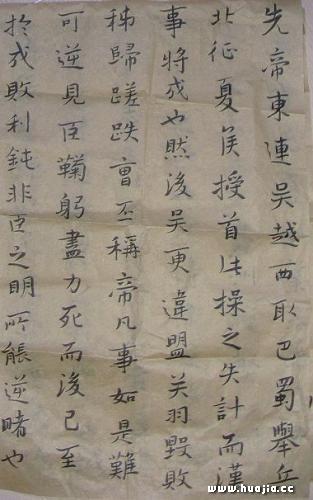 先帝東連吳越西取巴蜀舉兵
北征夏侯授首此操之失計而漢
事將成也然後吳更違盟关羽毀敗
秭歸蹉跌曹丕稱帝凡事如是難
可逆見臣鞠躬盡力死而後已至
於成敗利鈍非臣之明所能逆睹也
www.huajia.cc